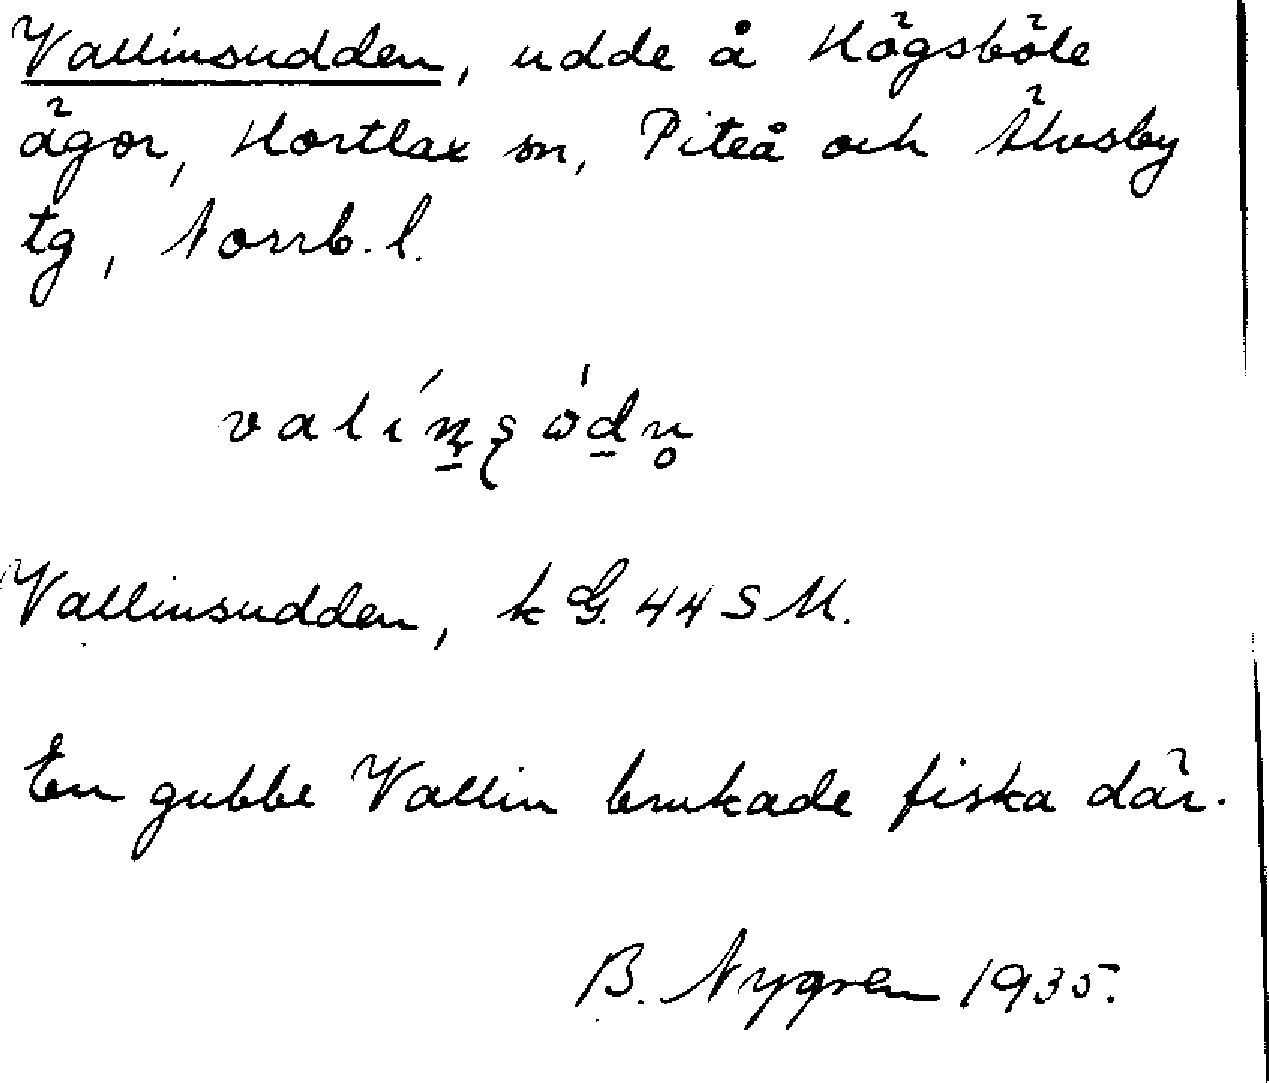 Vallinsudden, udde å Högsböle
ägor, Hortlax sn, Piteå och Älvsby
tg, Norrb. l.
Vallinsudden, k G. 44 S M.
En gubbe Vallin brukade fiska där.
B. Nygren 1935.